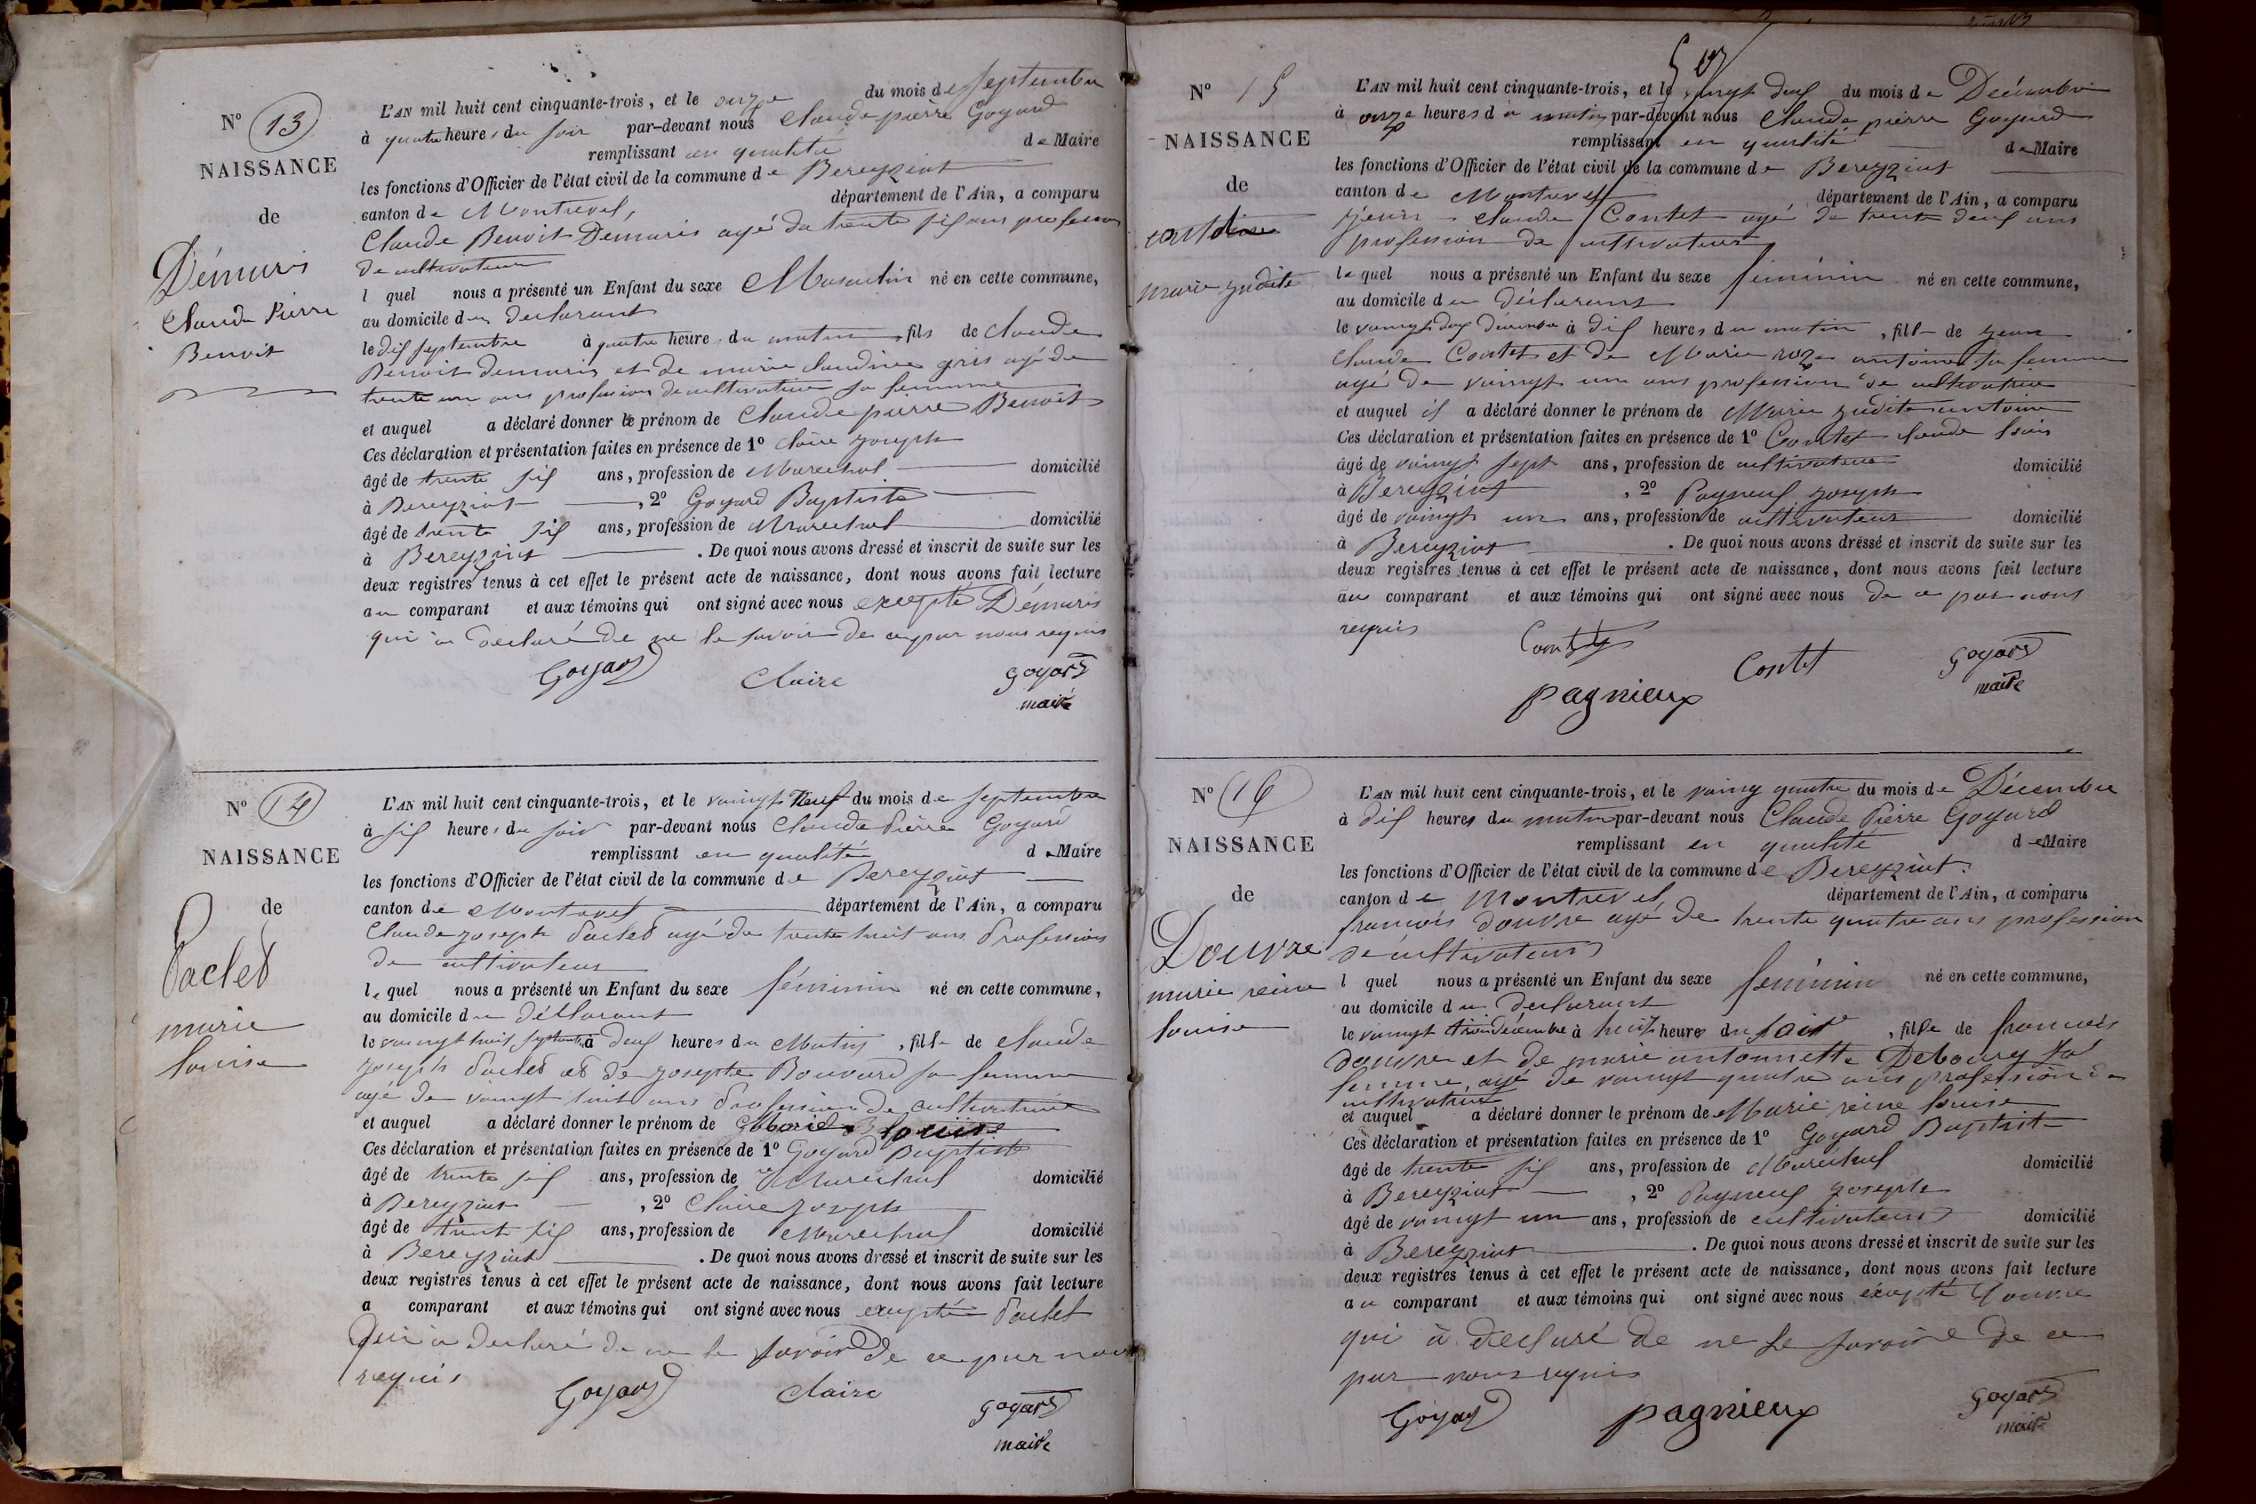 N° 13
NAISSANCE
de
Démuris
Claude Pierre
Benoit
L'AN mil huit cent cinquante-trois, et le onze du mois de septembre
à quatre heures du soir par-devant nous Claude pierre Goyard
remplissant en qualité de Maire
les fonctions d'Officier de l'état civil de la commune de Bereyziat
canton de Montrevel, département de l'Ain, a comparu
Claude Benoit Demuris agé de trente six ans profession
de cultivateur
l quel nous a présenté un Enfant du sexe Masculin né en cette commune,
au domicile du declarant
le dix septembre à quatre heures du matin, fils de claude
Benoit demuris et de marie claudine gris agé de
trente un ans profession de cultivatrice sa femme
et auquel a déclaré donner le prénom de Claude pierre Benoit
Ces déclaration et présentation faites en présence de 1° Claire joseph
âgé de trente six ans, profession de Marechal domicilié
à Bereyziat, 2° Goyard Baptiste
âgé de trente six ans, profession de Marechal domicilié
à Bereyziat. De quoi nous avons dressé et inscrit de suite sur les
deux registres tenus à cet effet le présent acte de naissance, dont nous avons fait lecture
au comparant et aux témoins qui ont signé avec nous excepté Démuris
qui a declaré de ne le savoir de ce par nous requis
Goyard Claire Goyard
maire
N° 14
NAISSANCE
de
Paclet
marie
louise
L'AN mil huit cent cinquante-trois, et le vaingt neuf du mois de septembre
à six heures du soir par-devant nous Claude Pierre Goyard
remplissant en qualité de Maire
les fonctions d'Officier de l'état civil de la commune de Bereyziat
canton de Montrevel département de l'Ain, a comparu
Claude joseph Paclet agé de trente huit ans Profession
de cultivateur
le quel nous a présenté un Enfant du sexe féminin né en cette commune,
au domicile du déclarant
le vaingt huit septembre à deux heures du Matin, fille de claude
joseph Paclet et de josephte Bouvard sa femme
agé de vaingt huit ans Profession de cultivatrice
et auquel a déclaré donner le prénom de Marie louise
Ces déclaration et présentation faites en présence de 1° Goyard Baptiste
âgé de trente six ans, profession de Marechal domicilié
à Bereyziat, 2° Claire joseph
âgé de trente six ans, profession de Marechal domicilié
à Bereyziat. De quoi nous avons dressé et inscrit de suite sur les
deux registres tenus à cet effet le présent acte de naissance, dont nous avons fait lecture
a comparant et aux témoins qui ont signé avec nous excepté Paclet
Qui a declaré de ne le savoir de ce par nous
requis
Goyard Claire Goyard
maire
N° 15
NAISSANCE
de
marie judite
L'AN mil huit cent cinquante-trois, et le vingt deux du mois de Décembre
à onze heures du matin par-devant nous Claude pierre Goyard
remplissant en qualité de Maire
les fonctions d'Officier de l'état civil de la commune de Bereyziat
canton de Montrevel département de l'Ain, a comparu
jean claude Contet agé de trente deux ans
profession de cultivateur
le quel nous a présenté un Enfant du sexe féminin né en cette commune,
au domicile du déclarant
le vaingt deux décembre à dix heures du matin, fille de jean
claude Contet et de Marie roze antoine sa femme
agé de vaingt un ans profession de cultivatrice
et auquel il a déclaré donner le prénom de Marie judite antoine
Ces déclaration et présentation faites en présence de 1° Contet claude
âgé de vaingt sept ans, profession de cultivateur domicilié
à Bereyziat, 2° Pagneux joseph
âgé de vaingt un ans, profession de cultivateur domicilié
à Bereyziat. De quoi nous avons dressé et inscrit de suite sur les
deux registres tenus à cet effet le présent acte de naissance, dont nous avons fait lecture
au comparant et aux témoins qui ont signé avec nous de ce par nous
requis
Contet Contet Goyard
pagnieux maire
N° 16
NAISSANCE
de
Douvre
marie reine
louise
L'AN mil huit cent cinquante-trois, et le vaing quatre du mois de Décembre
à dix heures du matin par-devant nous Claude Pierre Goyard
remplissant en qualité de Maire
les fonctions d'Officier de l'état civil de la commune de Bereyziat.
canton de Montrevel département de l'Ain, a comparu
francois douvre agé de trente quatre ans profession
de cultivateur
l quel nous a présenté un Enfant du sexe feminin né en cette commune,
au domicile du declarant
le vaingt trois décembre à huit heures du soir, fille de francois
douvre et de marie antonnette Debourg sa
femme, agé de vaingt quatre ans profession de
cultivatrice
et auquel a déclaré donner le prénom de Marie reine louise
Ces déclaration et présentation faites en présence de 1° Goyard Baptiste
âgé de trente six ans, profession de Marechal domicilié
à Bereyziat, 2° Pagneux joseph
âgé de vaingt un ans, profession de cultivateur domicilié
à Bereyziat. De quoi nous avons dressé et inscrit de suite sur les
deux registres tenus à cet effet le présent acte de naissance, dont nous avons fait lecture
au comparant et aux témoins qui ont signé avec nous éxcepté Douvre
qui à declaré de ne le savoir de ce
par nous requis
Goyard pagnieux Goyard
maire